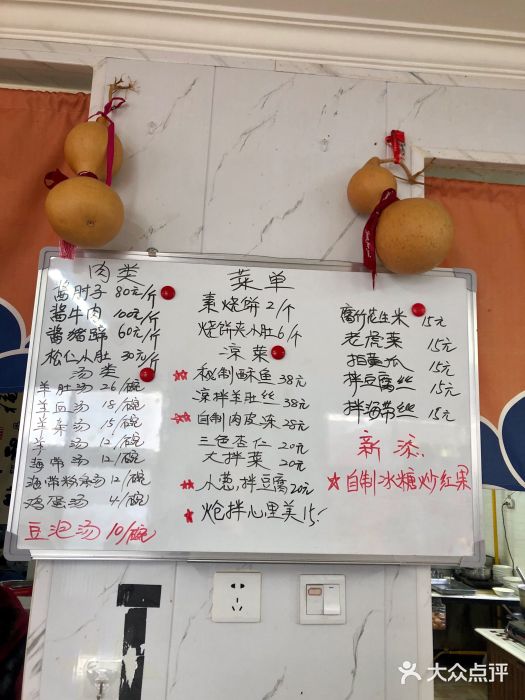 肉类
酱肘子 80元/斤
酱牛肉 100元/斤
酱猪蹄 60元/斤
松仁小肚 30元/斤
汤类
羊肚汤 26/碗
羊肉汤 18/碗
羊杂汤 15/碗
羊 汤 12/碗
海带汤 12/碗
海带粉汤 12/碗
鸡蛋汤 4/碗
豆泡汤 10/碗
菜单
素烧饼 2/个
烧饼夹小肚 6/个
凉菜
秘制酥鱼 38元
凉拌羊肚丝 38元
自制肉皮冻 28元
三色杏仁 20元
大拌菜 20元
小葱拌豆腐 20元
炝拌心里美 15.
腐竹花生米 15元
老虎菜 15元
拍黄瓜 15元
拌豆腐丝 15元
拌海带丝 15元
新添
自制冰糖炒红果
大众点评